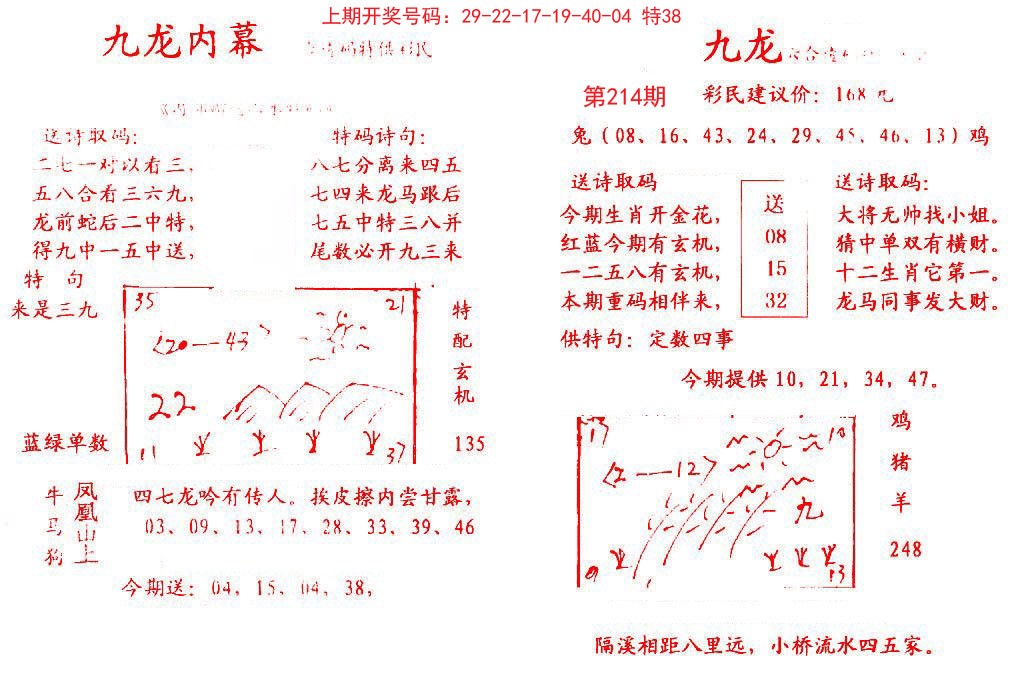 上期开奖号码：29-22-17-19-40-04 特38
九龙内幕
码特供彩民
送诗取码：
二七一对以看三，
五八合看三六九，
龙前蛇后二中特，
得九中一五中送，
特码诗句：
八七分离来四五
七四来龙马跟后
七五中特三八并
尾数必开九三来
特 句
来是三九
蓝绿单数
35
21
<20—43>
22
11
37
特
配
玄
机
135
牛
马
狗
凤
凰
山
上
四七龙吟有传人。挨皮擦内尝甘露，
03、09、13、17、28、33、39、46
今期送：04，15，04，38，
九龙
第214期
彩民建议价：168元
兔（08、16、43、24、29、45、46、13）鸡
送诗取码
今期生肖开金花，
红蓝今期有玄机，
一二五八有玄机，
本期重码相伴来，
送
08
15
32
送诗取码：
大将无帅找小姐。
猜中单双有横财。
十二生肖它第一。
龙马同事发大财。
供特句：定数四事
今期提供10，21，34，47。
17
10
<2—12>
九
9
13
鸡
猪
羊
248
隔溪相距八里远，小桥流水四五家。